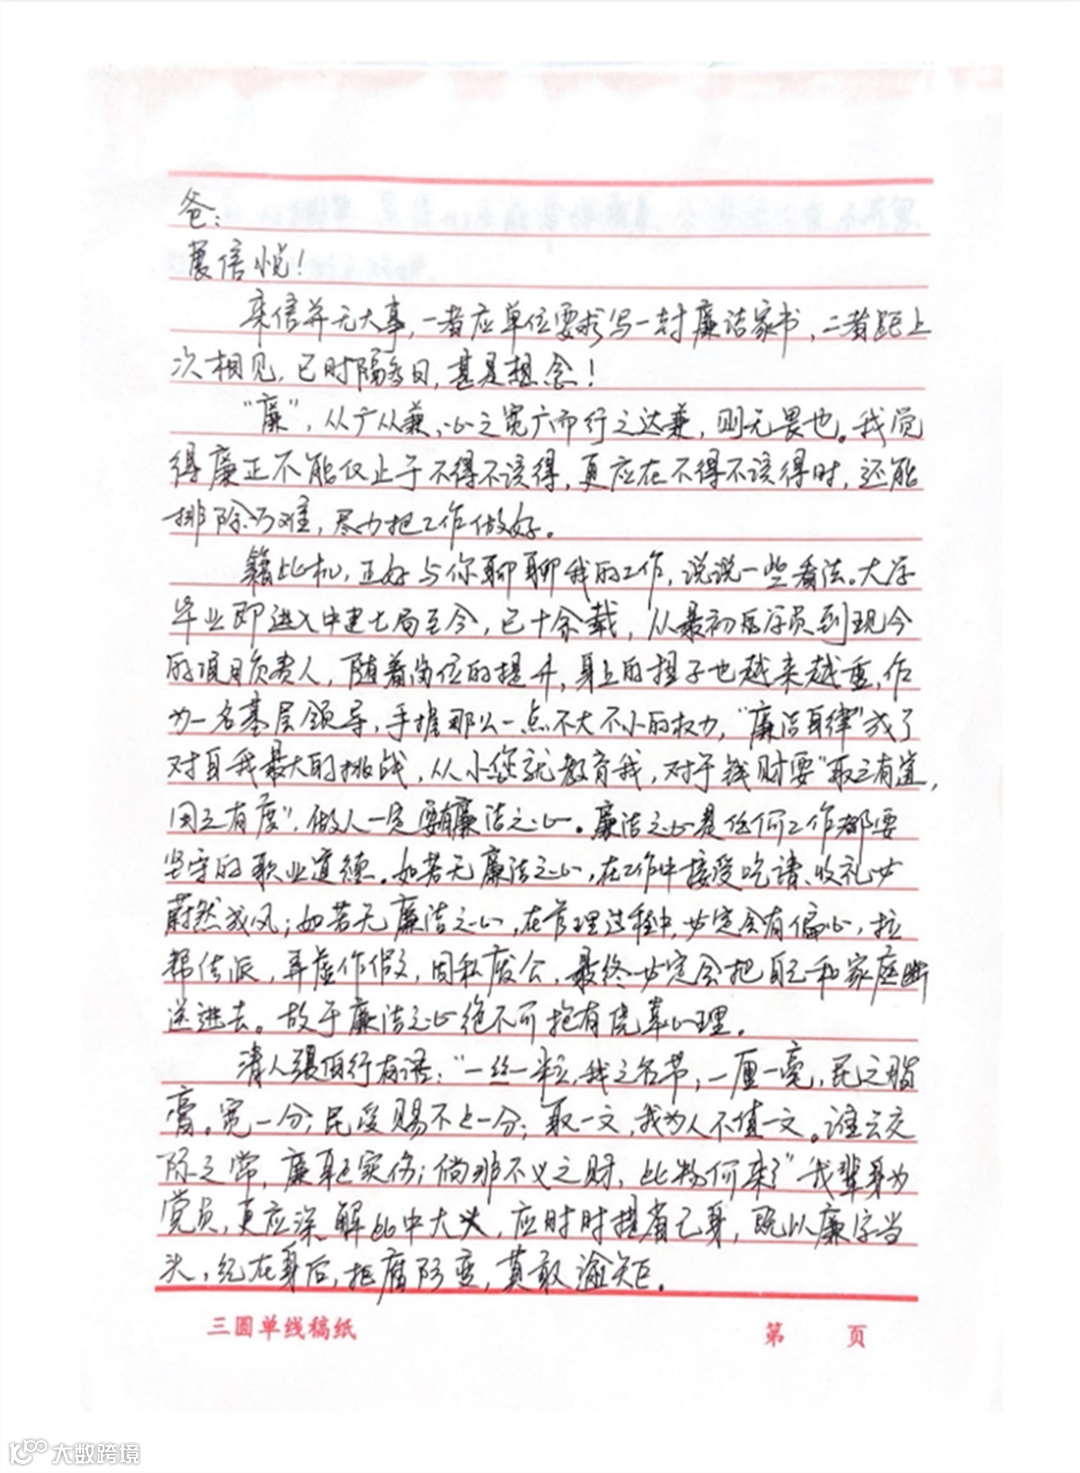 爸：
展信悦！
来信并无大事，一者应单位要求写一封廉洁家书，二者距上
次相见，已时隔多日，甚是想念！
“廉”，从广从兼，心之宽广而行之达兼，则无畏也。我觉
得廉正不能仅止于不得不该得，更应在不得不该得时，还能
排除万难，尽力把工作做好。
籍此机，正好与你聊聊我的工作，说说一些看法。大学
毕业即进入中建七局至今，已十余载，从最初后学员到现今
的项目负责人，随着岗位的提升，身上的担子也越来越重，作
为一名基层领导，手握那么一点不大不小的权力，“廉洁自律”成了
对自我最大的挑战，从小您就教育我，对于钱财要“取之有道，
用之有度”，做人一定要有廉洁之心。廉洁之心是任何工作都要
坚守的职业道德。如若无廉洁之心，在工作中接受吃请、收礼必
蔚然成风；如若无廉洁之心，在管理过程中，必定会有偏心，拉
帮结派，弄虚作假，因私废公，最终必定会把自己和家庭断
送进去。故于廉洁之心绝不可抱有侥幸心理。
清人张伯行有语：“一丝一粒，我之名节，一厘一毫，民之脂
膏。宽一分，民受赐不止一分；取一文，我为人不值一文。谁云交
际之常，廉耻实伤；倘非不义之财，此物何来？”我辈身为
党员，更应深解此中大义，应时时提省己身，既以廉字当
头，纪在身后，拒腐防变，莫敢逾矩。
三圆单线稿纸
第 页
大数跨境